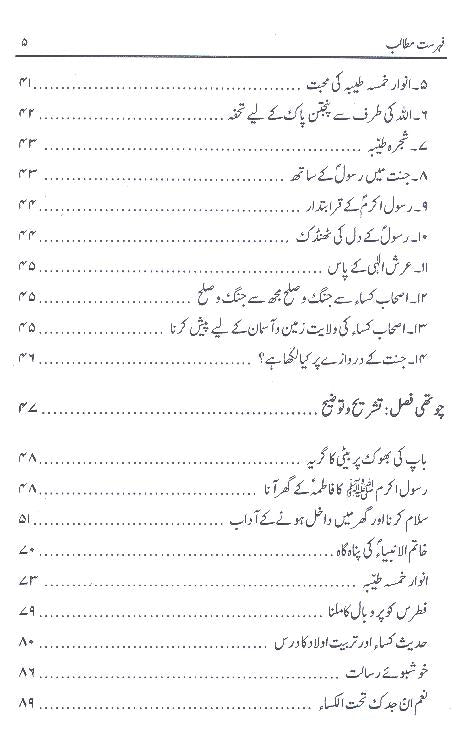 فہرست مطالب ۵
۵۔ انوار خمسہ طیبہ کی محبت ۴۱
۶۔ اللہ کی طرف سے پنجتن پاک کے لیے تحفہ ۴۲
۷۔ شجرہ طیّبہ ۴۳
۸۔ جنت میں رسولؐ کے ساتھ ۴۳
۹۔ رسول اکرمؐ کے قرابتدار ۴۴
۱۰۔ رسولؐ کے دل کی ٹھنڈک ۴۴
۱۱۔ عرش الٰہی کے پاس ۴۵
۱۲۔ اصحاب کساء سے جنگ و صلح مجھ سے جنگ و صلح ۴۵
۱۳۔ اصحاب کساء کی ولایت زمین و آسمان کے لیے پیش کرنا ۴۵
۱۴۔ جنت کے دروازے پر کیا لکھا ہے؟ ۴۶
چوتھی فصل: تشریح و توضیح ۴۷
باپ کی بھوک پر بیٹی کا گریہ ۴۸
رسول اکرم ﷺ کا فاطمہؑ کے گھر آنا ۴۸
سلام کرنا اور گھر میں داخل ہونے کے آداب ۵۱
خاتم الانبیاءؐ کی پناہ گاہ ۷۰
انوار خمسہ طیّبہ ۷۳
فطرس کو پر و بال کا ملنا ۷۹
حدیث کساء اور تربیت اولاد کا درس ۸۰
خوشبوئے رسالت ۸۶
نعم انّ جدک تحت الکساء ۸۹